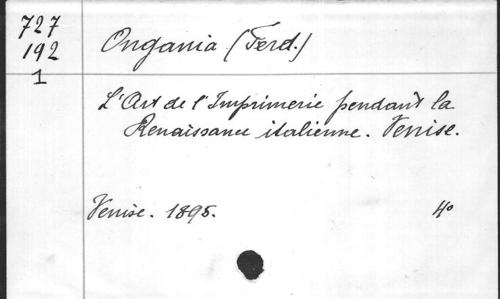 727
192
1
Ongania (Ferd.)
L'Art de l'Imprimerie pendant la
Renaissance italienne. Venise.
Venise. 1895. 4º